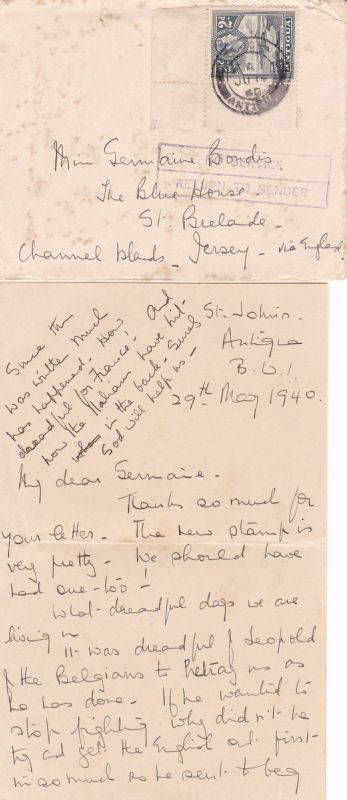 ANTIGUA
2½D
JU 14
40
ANTIGUA
NO SERVICE
RETURN TO SENDER
Miss Germaine Bordis.
The Blue House
St. Brelade.
Channel Islands - Jersey - via England
St. Johns.
Antigua
B.W.I.
29th May 1940.
Since this
was written much
has happened. How
dreadful for France! And
now the Italians have hit
in the back - Surely
God will help us -
My dear Germaine.
Thanks so much for
your letter. The new stamp is
very pretty - We should have
had one - too!
What dreadful days we are
living in
It was dreadful of Leopold
of the Belgians to betray us as
he has done. If he wanted to
stop fighting why didn't he
try and get the English out first -
in so much as he sent to beg